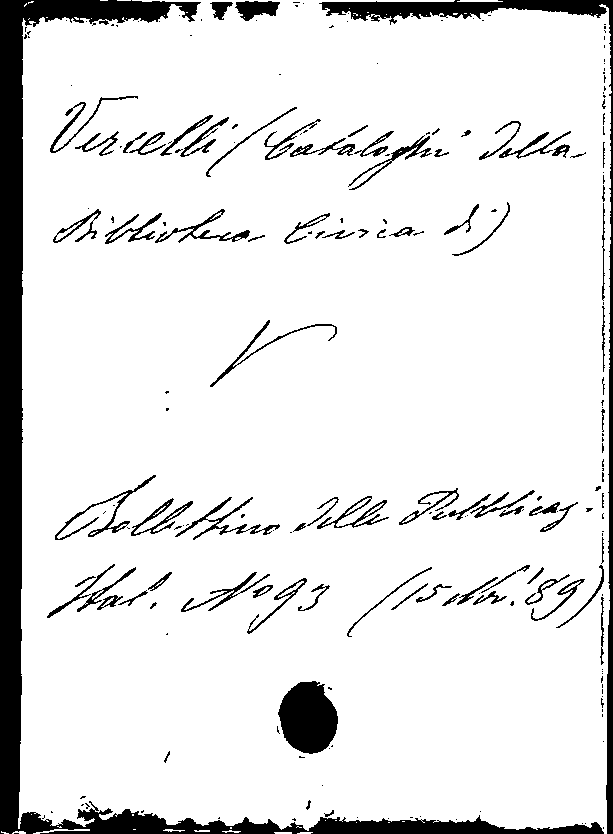 Vercelli (Cataloghi della
Biblioteca Civica di)
V
Bollettino delle Pubblicaz.
Ital. Nº 93 (15 Nov. '89)